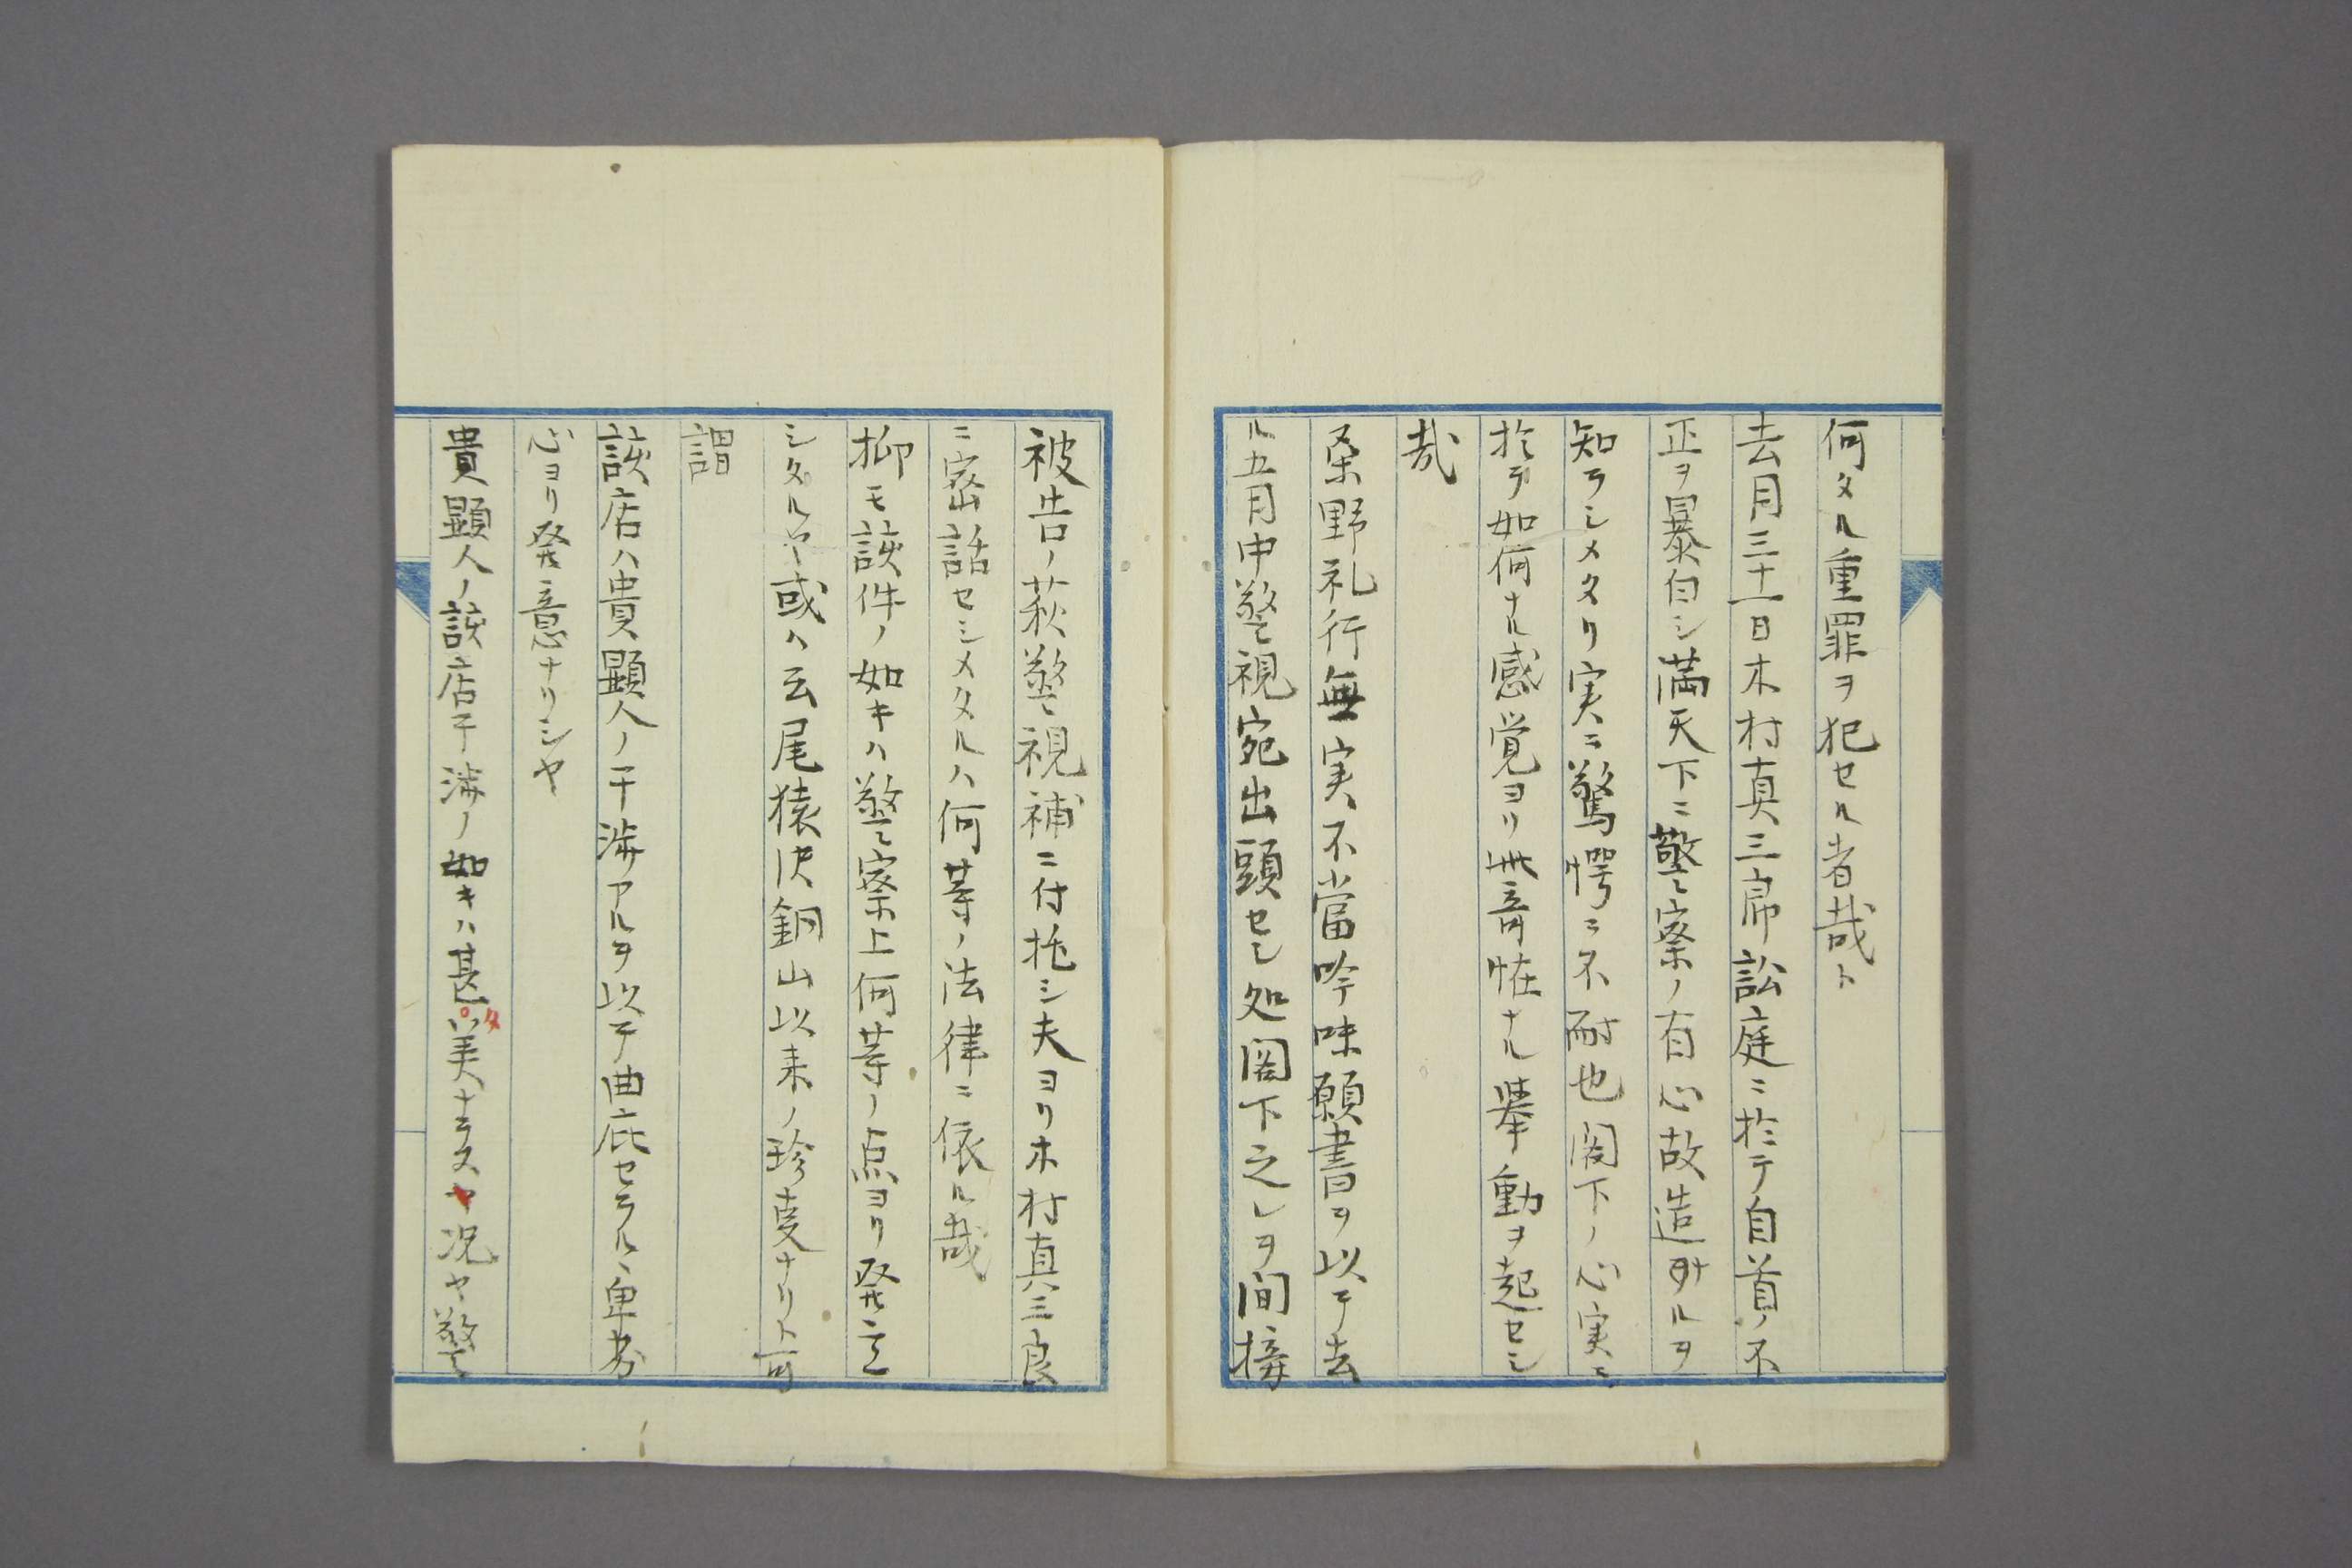 何タル重罪ヲ犯セル者哉ト
去月三十一日木村真三郎訟庭ニ於テ自首ノ不
正ヲ暴白シ満天下ニ警察ノ有心故造ナルヲ
知ラシメタリ実ニ驚愕ニ不耐也閣下ノ心実ニ
於テ如何ナル感覚ヨリ此奇怪ナル挙動ヲ起セシ
哉
桑野礼行無実不当吟味願書ヲ以テ去
ル五月中警視宛出頭セシ処閣下之レヲ間接
被告ノ萩警視補ニ付托シ夫ヨリ木村真三良
ニ密話セシメタルハ何等ノ法律ニ依ル哉
抑モ該件ノ如キハ警察上何等ノ点ヨリ発立
シタルヤ或ハ云尾猿沢銅山以来ノ珍事ナリト可
謂
該店ハ貴顕人ノ干渉アルヲ以テ曲庇セラル、卑劣
心ヨリ発意ナリシヤ
貴顕人ノ該店干渉ノ如キハ甚タ美ナラスヤ況ヤ警